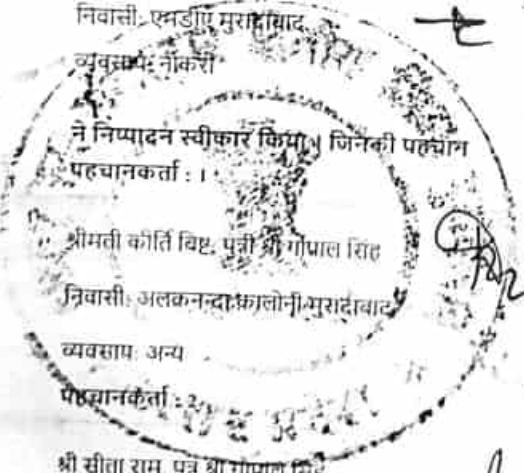 निवासी: एमडीए मुरादाबाद
व्यवसाय: नौकरी
ने निष्पादन स्वीकार किया । जिनकी पहचान
पहचानकर्ता : 1
श्रीमती कीर्ति बिष्ट, पुत्री श्री गोपाल सिंह
निवासी: अलकनन्दा कालोनी मुरादाबाद
व्यवसाय: अन्य
पहचानकर्ता : 2
श्री सीता राम, पुत्र श्री गोपाल सिंह